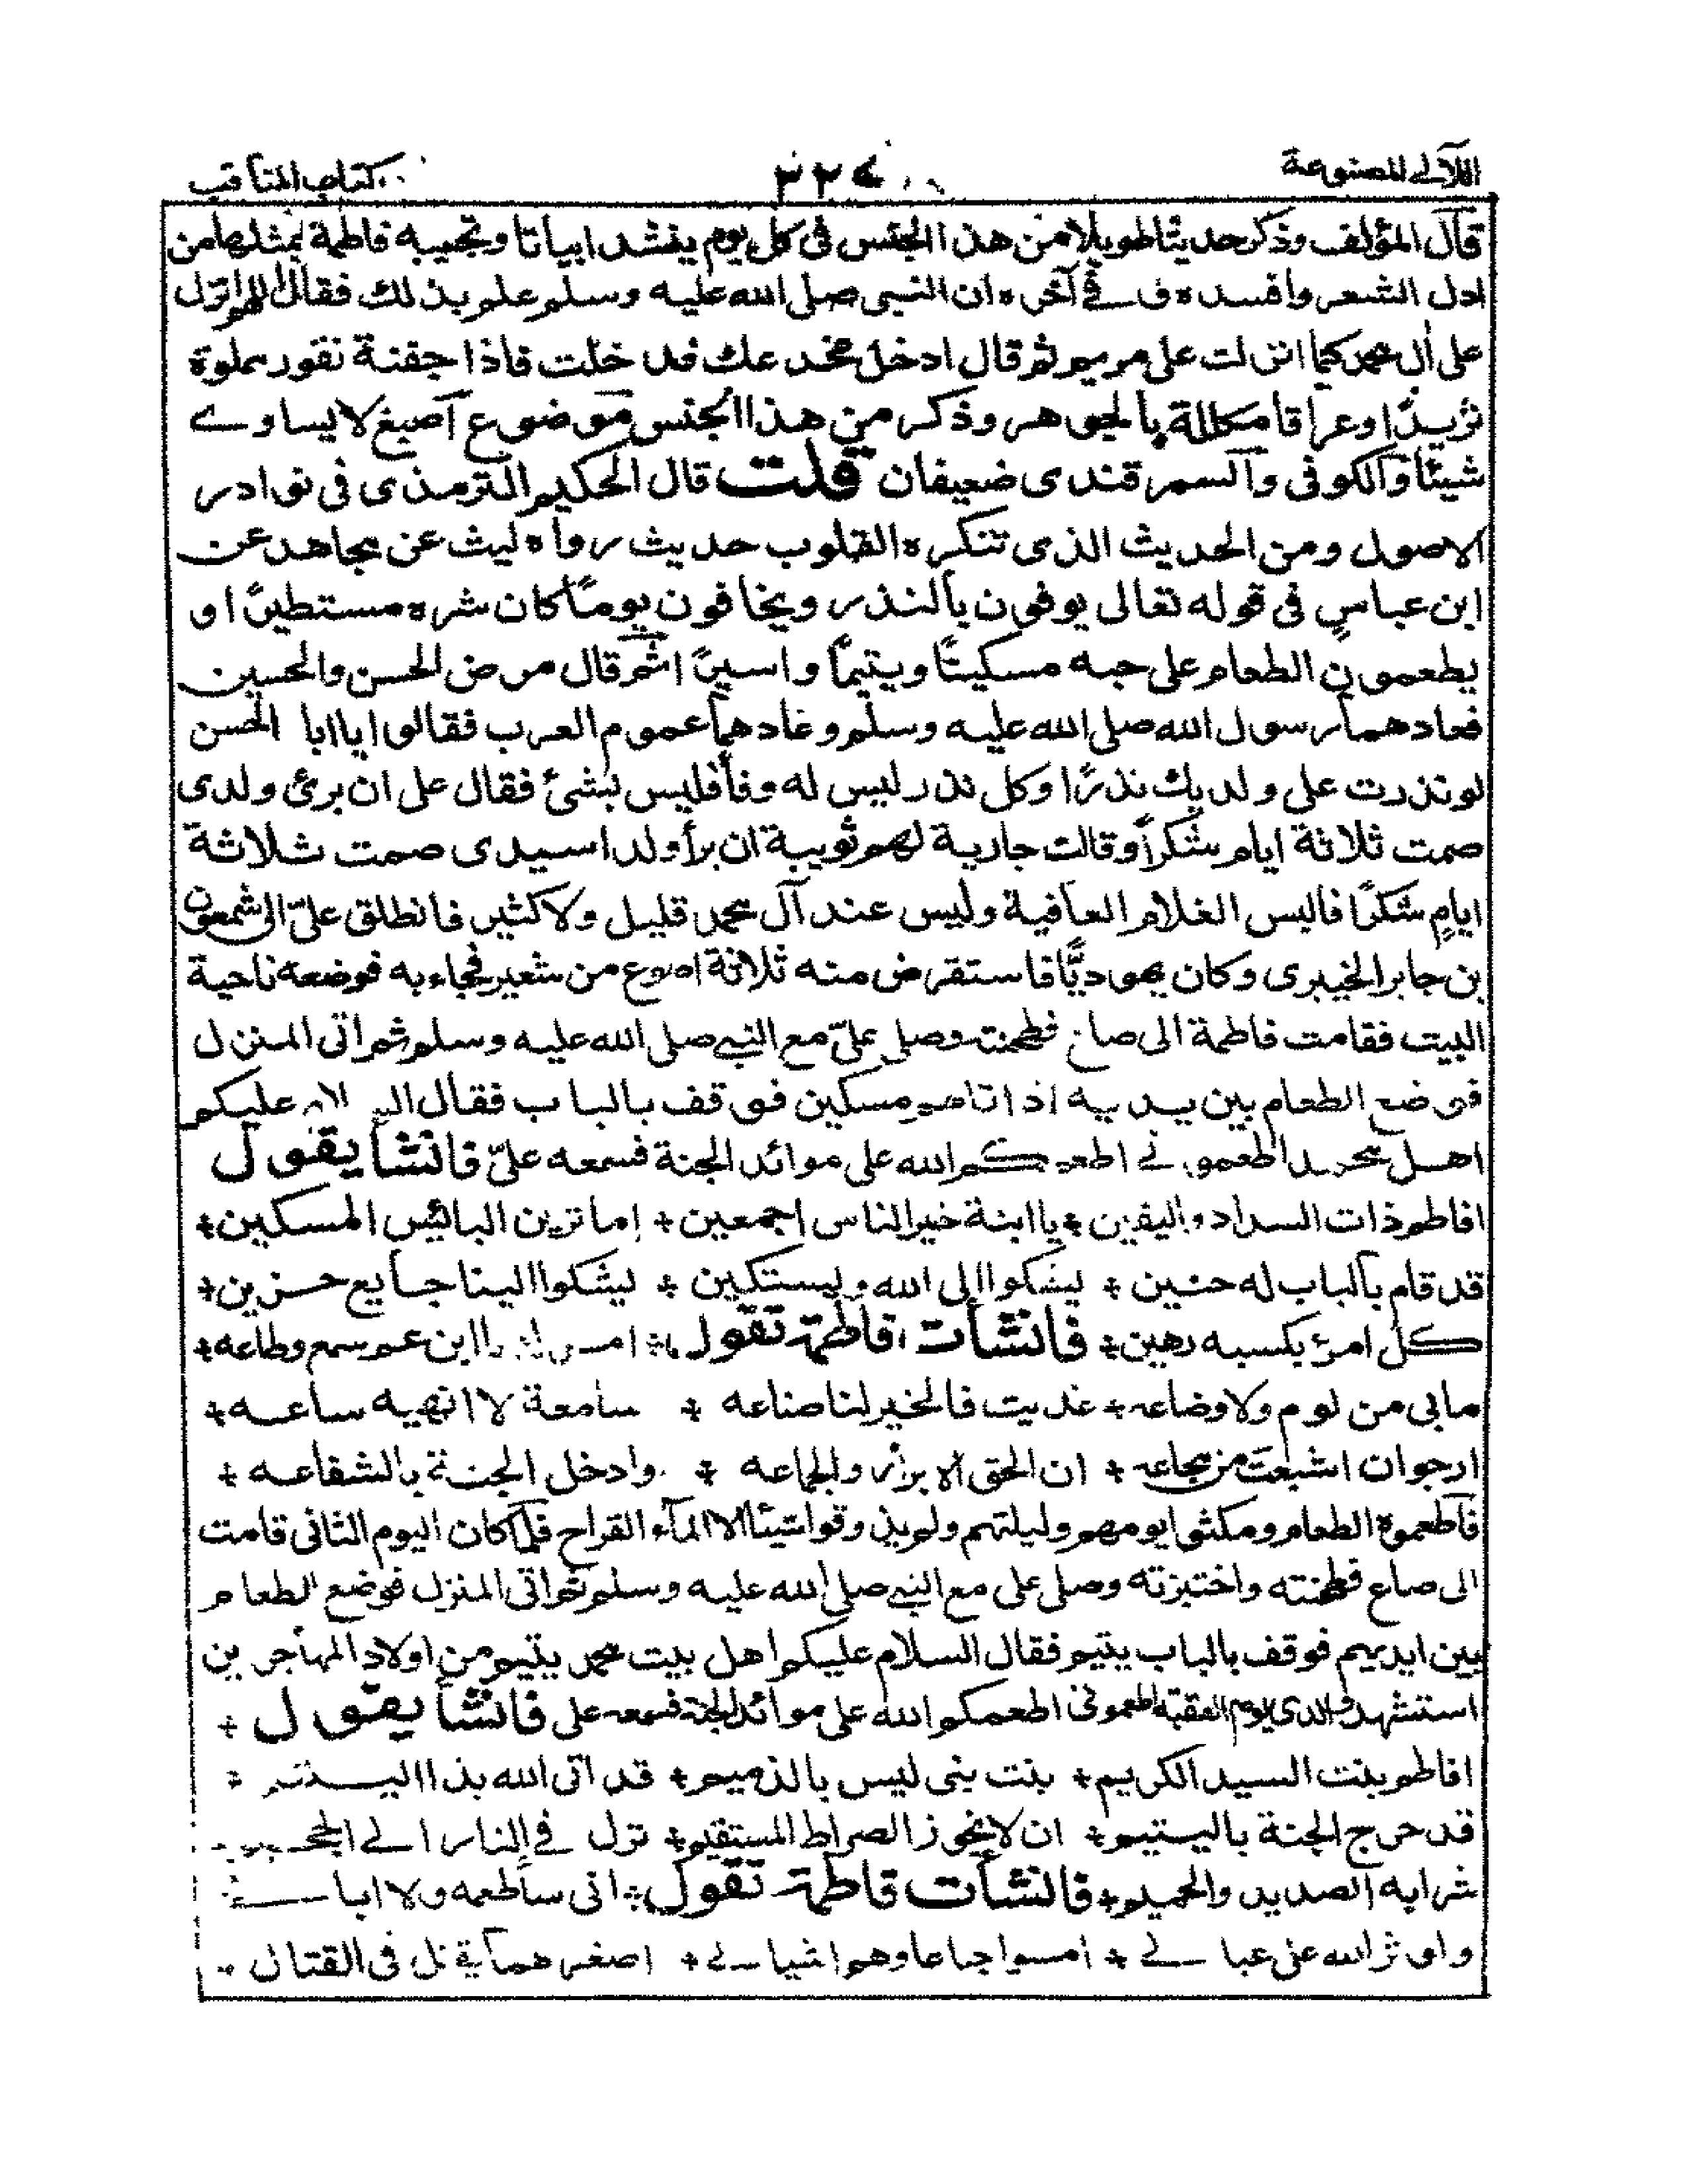 اللآلى المصنوعة ٣٢٤ كتاب المناقب
قال المؤلف وذكر حديثا طويلا من هذا الجنس فى كل يوم ينشد ابياتا وتجيبه فاطمة بمثلها من
ارذل الشعر وافسده وفے آخره ان النبى صلى الله عليه وسلم علم بذلك فقال اللهم انزل
على آل محمد كما انزلت على مريم ثم قال ادخلى مخدعك فدخلت فاذا جفنة تفور مملوة
ثريدًا وعراقا مكللة بالجوهر وذكر من هذا الجنس موضوع اصبغ لا يساوے
شيئا والكوفى والسمرقندى ضعيفان قلت قال الحكيم الترمذى فى نوادر
الاصول ومن الحديث الذى تنكره القلوب حديث رواه ليث عن مجاهد عن
ابن عباسٍ فى قوله تعالى يوفون بالنذر ويخافون يومًا كان شره مستطيرًا و
يطعمون الطعام على حبه مسكينًا ويتيمًا واسيرًا ثم قال مرض الحسن والحسين
فعادهما رسول الله صلى الله عليه وسلم وعادهما عموم العرب فقالوا يا ابا الحسن
لو نذرت على ولديك نذرًا وكل نذر ليس له وفأ فليس بشئ فقال على ان برئ ولدى
صمت ثلاثة ايام شكرًا وقالت جارية لهم ثويبة ان برأ ولدا سيدى صمت ثلاثة
ايامٍ شكرًا فالبس الغلام العافية وليس عند آل محمد قليل ولا كثير فانطلق علىّ الى شمعون
بن جابر الخيبرى وكان يهوديًّا فاستقرض منه ثلاثة اصوع من شعير فجاء به فوضعه ناحية
البيت فقامت فاطمة الى صاع فطحنته وصلى علىّ مع النبے صلى الله عليه وسلم ثم اتى المنزل
فوضع الطعام بين يديه اذ اتاهم مسكين فوقف بالباب فقال السلام عليكم
اهل محمد اطعمونے اطعمكم الله على موائد الجنة فسمعه علىّ فانشأ يقول
افاطم ذات السداد واليقين + يا ابنة خير الناس اجمعين + اما ترين البائس المسكين +
قد قام بالباب له حنين + يشكوا الى الله ويستكين + يشكوا الينا جايع حزين +
كل امرئ بكسبه رهين + فانشأت فاطمة تقول + يا ابن عم سمع وطاعه +
مابى من لوم ولا وضاعه + غديت فالخير لنا صناعه + سامعة لا انهيه ساعه +
ارجو ان اشبعت من مجاعه + ان الحق الابرار والجماعه + وادخل الجنة بالشفاعه +
فاطعموه الطعام ومكثوا يومهم وليلتهم ولم يذوقوا شيئا الا المآء القراح فلما كان اليوم الثانى قامت
الى صاع فطحنته واختبزته وصلى على مع النبے صلى الله عليه وسلم ثم اتى المنزل فوضع الطعام
بين ايديهم فوقف بالباب يتيم فقال السلام عليكم اهل بيت محمد يتيم من اولاد المهاجرين
استشهد والدى يوم العقبة اطعمونى اطعمكم الله على موائد الجنة فسمعه على فانشأ يقول +
افاطم بنت السيد الكريم + بنت نبى ليس بالذميم + قد اتى الله بذا اليتيم +
قد حرج الجنة باليتيم + ان لا يجوز الصراط المستقيم + نزل فے النار الے الجحيم
شرابه الصديد والحميم + فانشأت فاطمة تقول + انى ساطعمه ولا ابالے
واوثر الله على عيالے + امسوا جياعا وهم اشبالے + اصغرهما يقتل فى القتال